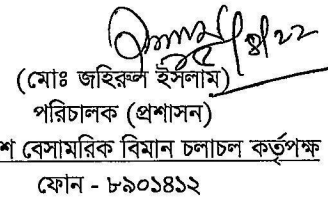 (মোঃ জহিরুল ইসলাম)
পরিচালক (প্রশাসন)
শ বেসামরিক বিমান চলাচল কর্তৃপক্ষ
ফোন - ৮৯০১৪১২